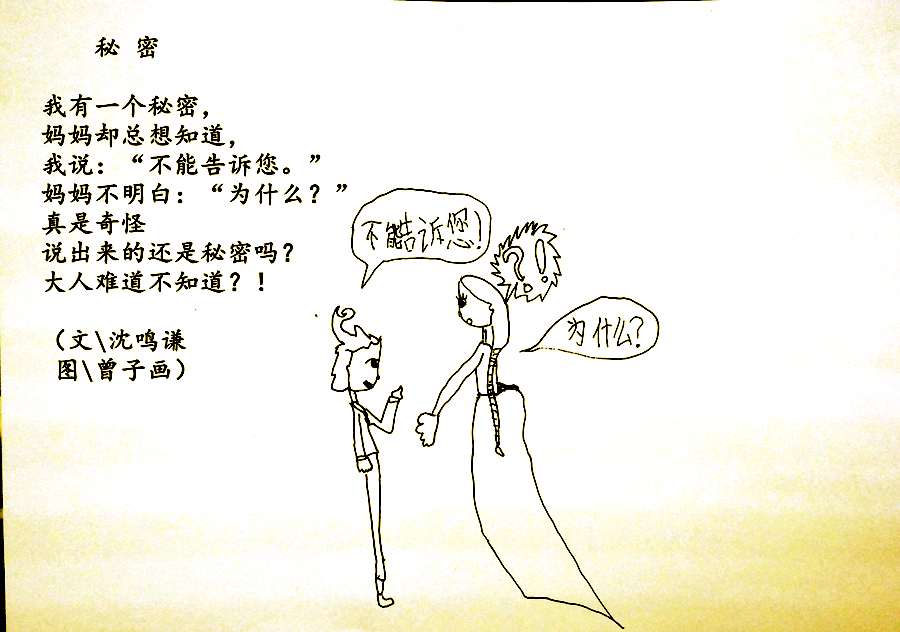 秘 密
我有一个秘密，
妈妈却总想知道，
我说：“不能告诉您。”
妈妈不明白：“为什么？”
真是奇怪
说出来的还是秘密吗？
大人难道不知道？！
（文\沈鸣谦
图\曾子画）
不能告诉您!
?!
为什么?